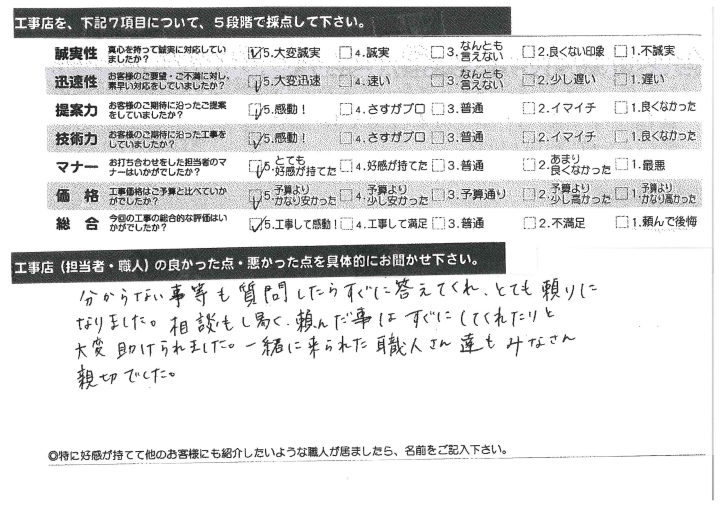 工事店を、下記7項目について、5段階で採点して下さい。
誠実性 真心を持って誠実に対応していましたか? ☑5.大変誠実 □4.誠実 □3.なんとも言えない □2.良くない印象 □1.不誠実
迅速性 お客様のご要望・ご不満に対し、素早い対応をしていましたか? ☑5.大変迅速 □4.速い □3.なんとも言えない □2.少し遅い □1.遅い
提案力 お客様のご期待に沿ったご提案をしていましたか? ☑5.感動! □4.さすがプロ □3.普通 □2.イマイチ □1.良くなかった
技術力 お客様のご期待に沿った工事をしていましたか? ☑5.感動! □4.さすがプロ □3.普通 □2.イマイチ □1.良くなかった
マナー お打ち合わせをした担当者のマナーはいかがでしたか? ☑5.とても好感が持てた □4.好感が持てた □3.普通 □2.あまり良くなかった □1.最悪
価格 工事価格はご予算と比べていかがでしたか? ☑5.予算よりかなり安かった □4.予算より少し安かった □3.予算通り □2.予算より少し高かった □1.予算よりかなり高かった
総合 今回の工事の総合的な評価はいかがでしたか? ☑5.工事して感動! □4.工事して満足 □3.普通 □2.不満足 □1.頼んで後悔
工事店(担当者・職人)の良かった点・悪かった点を具体的にお聞かせ下さい。
分からない事等も質問したらすぐに答えてくれ、とても頼りに
なりました。相談もし易く、頼んだ事はすぐにしてくれたりと
大変助けられました。一緒に来られた職人さん達もみなさん
親切でした。
◎特に好感が持てて他のお客様にも紹介したいような職人が居ましたら、名前をご記入下さい。